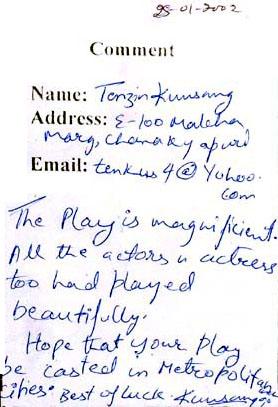 28-01-2002
Comment
Name: Tenzin Kunsang
Address: E-100 Malcha
Marg, Chanakyapuri
Email: tenkus4@Yahoo.
com
The Play is magnificient.
All the actors n actress
too had played
beautifully.
Hope that your Play
be casted in Metropolitan
Cities. Best of luck Kunsang